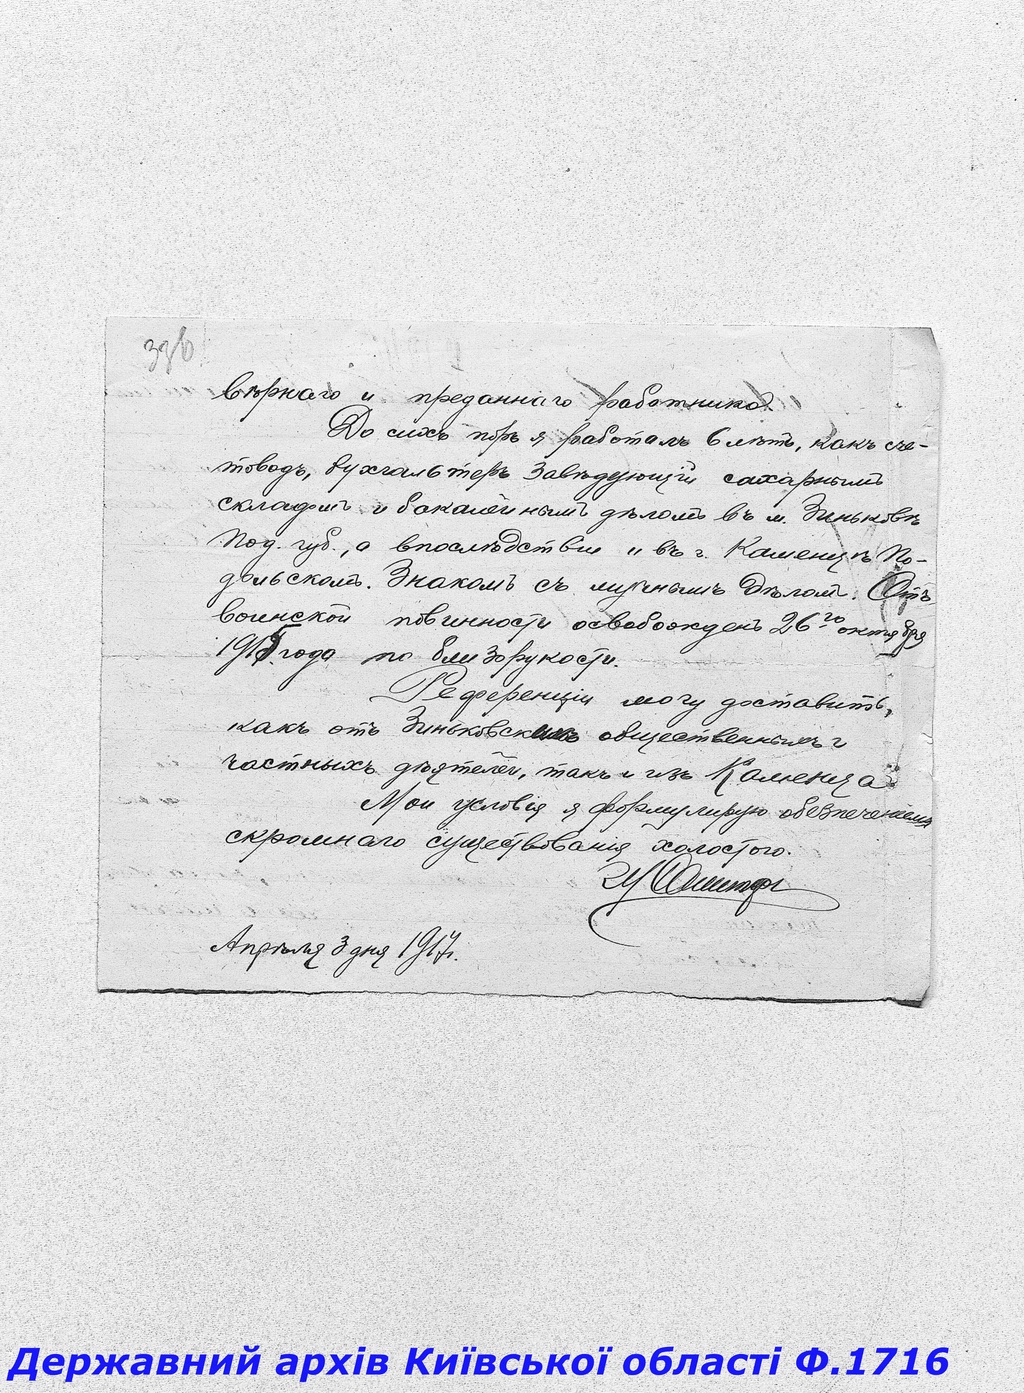 33б
вѣрнаго и преданнаго работника.
До сихъ поръ я работалъ 6 лѣтъ, какъ сче-
товодъ, бухгалтеръ завѣдующій сахарнымъ
складомъ и бакалейнымъ дѣломъ въ м. Зиньковѣ
Под. губ., а впослѣдствіи и въ г. Каменцѣ По-
дольскомъ. Знакомъ съ мучнымъ дѣломъ. Отъ
воинской повинности освобожденъ 26го октября
1915 года по близорукости.
Референціи могу доставить,
какъ отъ Зиньковскихъ общественныхъ и
частныхъ дѣятелей, такъ и изъ Каменца
Мои условія я формулирую обезпеченіемъ
скромнаго существованія холостого.
Апрѣля 3 дня 1917 г.
Державний архів Київської області Ф.1716